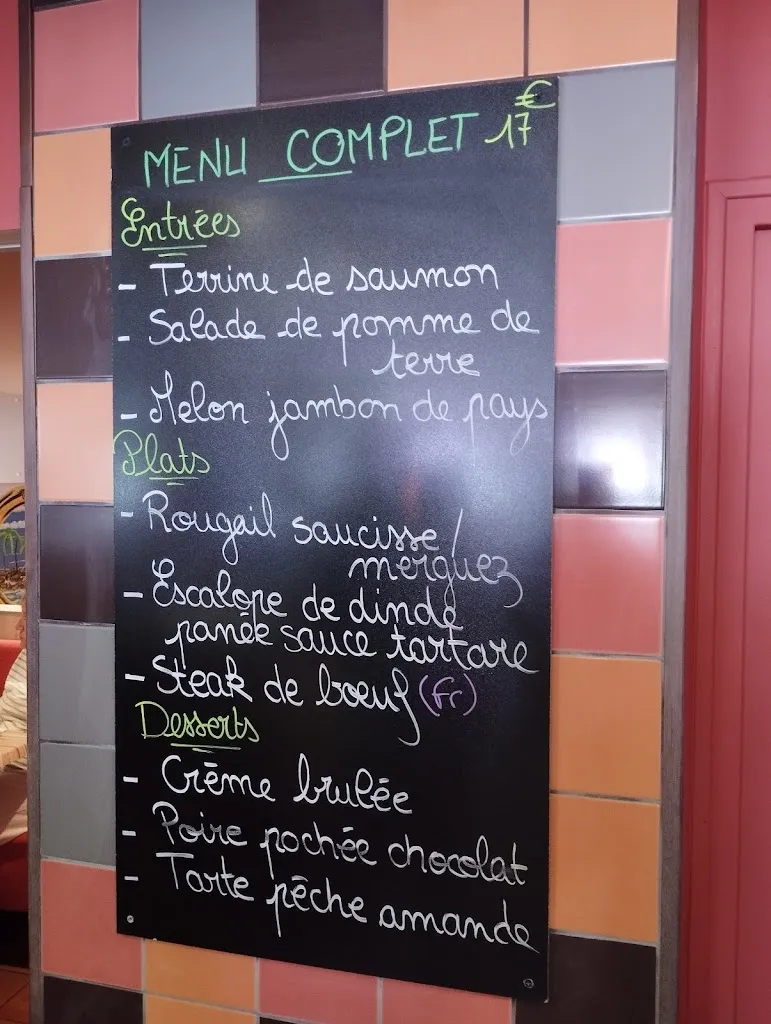 MENU COMPLET 17 €
Entrées
- Terrine de saumon
- Salade de pomme de
terre
- Melon jambon de pays
Plats
- Rougail saucisse /
merguez
- Escalope de dinde
panée sauce tartare
- Steak de boeuf (Fr)
Desserts
- Crème brulée
- Poire pochée chocolat
- Tarte pêche amande